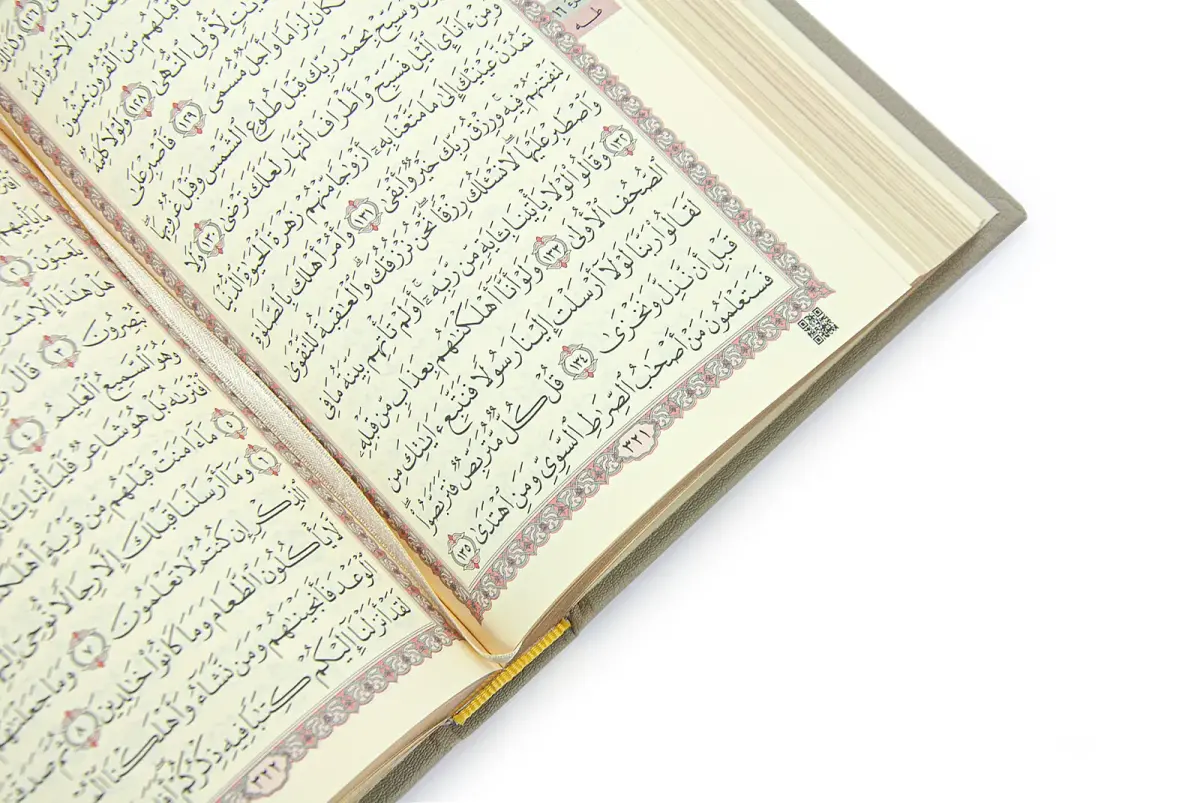 طه
وَلَعَذَابُ ٱلْأَخِرَةِ أَشَدُّ
قَبْلَهُم مِّنَ ٱلْقُرُونِ يَمْشُونَ
لِّأُو۟لِى ٱلنُّهَىٰ ١٢٨ وَلَوْلَا كَلِمَةٌ
لَكَانَ لِزَامًا وَأَجَلٌ مُّسَمًّى ١٢٩ فَٱصْبِرْ عَلَىٰ
وَسَبِّحْ بِحَمْدِ رَبِّكَ قَبْلَ طُلُوعِ ٱلشَّمْسِ وَقَبْلَ غُرُوبِهَا
وَمِنْ ءَانَآئِ ٱلَّيْلِ فَسَبِّحْ وَأَطْرَافَ ٱلنَّهَارِ لَعَلَّكَ تَرْضَىٰ ١٣٠ وَلَا
تَمُدَّنَّ عَيْنَيْكَ إِلَىٰ مَا مَتَّعْنَا بِهِۦٓ أَزْوَٰجًا مِّنْهُمْ زَهْرَةَ ٱلْحَيَوٰةِ ٱلدُّنْيَا
لِنَفْتِنَهُمْ فِيهِ وَرِزْقُ رَبِّكَ خَيْرٌ وَأَبْقَىٰ ١٣١ وَأْمُرْ أَهْلَكَ بِٱلصَّلَوٰةِ
وَٱصْطَبِرْ عَلَيْهَا لَا نَسْـَٔلُكَ رِزْقًا نَّحْنُ نَرْزُقُكَ وَٱلْعَٰقِبَةُ لِلتَّقْوَىٰ
١٣٢ وَقَالُوا۟ لَوْلَا يَأْتِينَا بِـَٔايَةٍ مِّن رَّبِّهِۦٓ أَوَلَمْ تَأْتِهِم بَيِّنَةُ مَا فِى
ٱلصُّحُفِ ٱلْأُولَىٰ ١٣٣ وَلَوْ أَنَّآ أَهْلَكْنَٰهُم بِعَذَابٍ مِّن قَبْلِهِۦ
لَقَالُوا۟ رَبَّنَا لَوْلَآ أَرْسَلْتَ إِلَيْنَا رَسُولًا فَنَتَّبِعَ ءَايَٰتِكَ مِن
قَبْلِ أَن نَّذِلَّ وَنَخْزَىٰ ١٣٤ قُلْ كُلٌّ مُّتَرَبِّصٌ فَتَرَبَّصُوا۟
فَسَتَعْلَمُونَ مَنْ أَصْحَٰبُ ٱلصِّرَٰطِ ٱلسَّوِىِّ وَمَنِ ٱهْتَدَىٰ ١٣٥
٣٢١
هَلْ هَٰذَآ إِلَّا بَشَرٌ
تُبْصِرُونَ ٣ قَالَ
وَهُوَ ٱلسَّمِيعُ ٱلْعَلِيمُ ٤
ٱفْتَرَىٰهُ بَلْ هُوَ شَاعِرٌ فَلْيَأْتِنَا
٥ مَآ ءَامَنَتْ قَبْلَهُم مِّن قَرْيَةٍ
٦ وَمَآ أَرْسَلْنَا قَبْلَكَ إِلَّا رِجَالًا نُّوحِىٓ
ٱلذِّكْرِ إِن كُنتُمْ لَا تَعْلَمُونَ ٧ وَمَا جَعَلْنَٰهُمْ
لَّا يَأْكُلُونَ ٱلطَّعَامَ وَمَا كَانُوا۟ خَٰلِدِينَ ٨ ثُمَّ
ٱلْوَعْدَ فَأَنجَيْنَٰهُمْ وَمَن نَّشَآءُ وَأَهْلَكْنَا
لَقَدْ أَنزَلْنَآ إِلَيْكُمْ كِتَٰبًا فِيهِ ذِكْرُكُمْ
٣٢٢